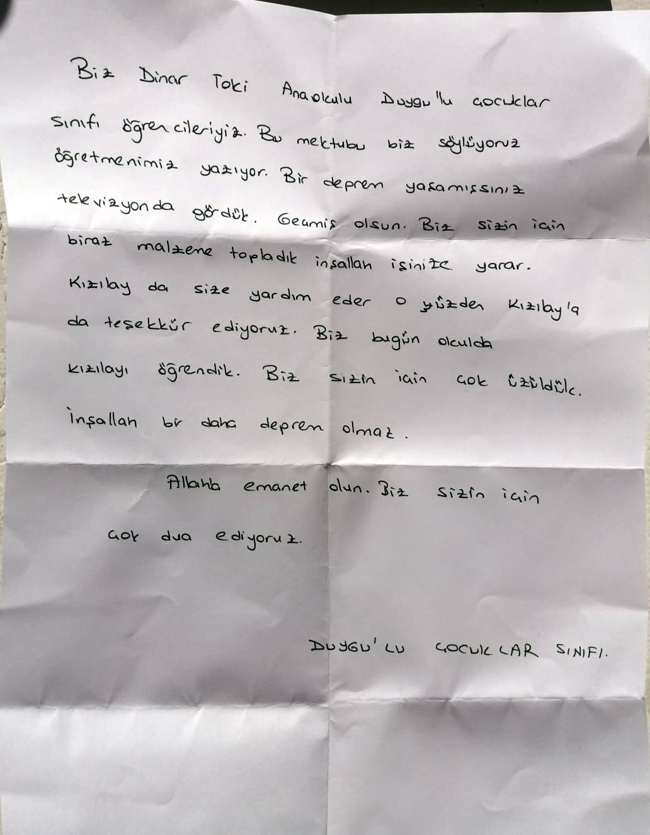 Biz Dinar Toki Anaokulu Duygu'lu çocuklar
sınıfı öğrencileriyiz. Bu mektubu biz söylüyoruz
öğretmenimiz yazıyor. Bir deprem yaşamışsınız
televizyonda gördük. Geçmiş olsun. Biz sizin için
biraz malzeme topladık inşallah işinize yarar.
Kızılay da size yardım eder o yüzden Kızılay'a
da teşekkür ediyoruz. Biz bugün okulda
kızılayı öğrendik. Biz sizin için çok üzüldük.
İnşallah bir daha deprem olmaz.
Allaha emanet olun. Biz sizin için
çok dua ediyoruz.
DUYGU'LU ÇOCUKLAR SINIFI.